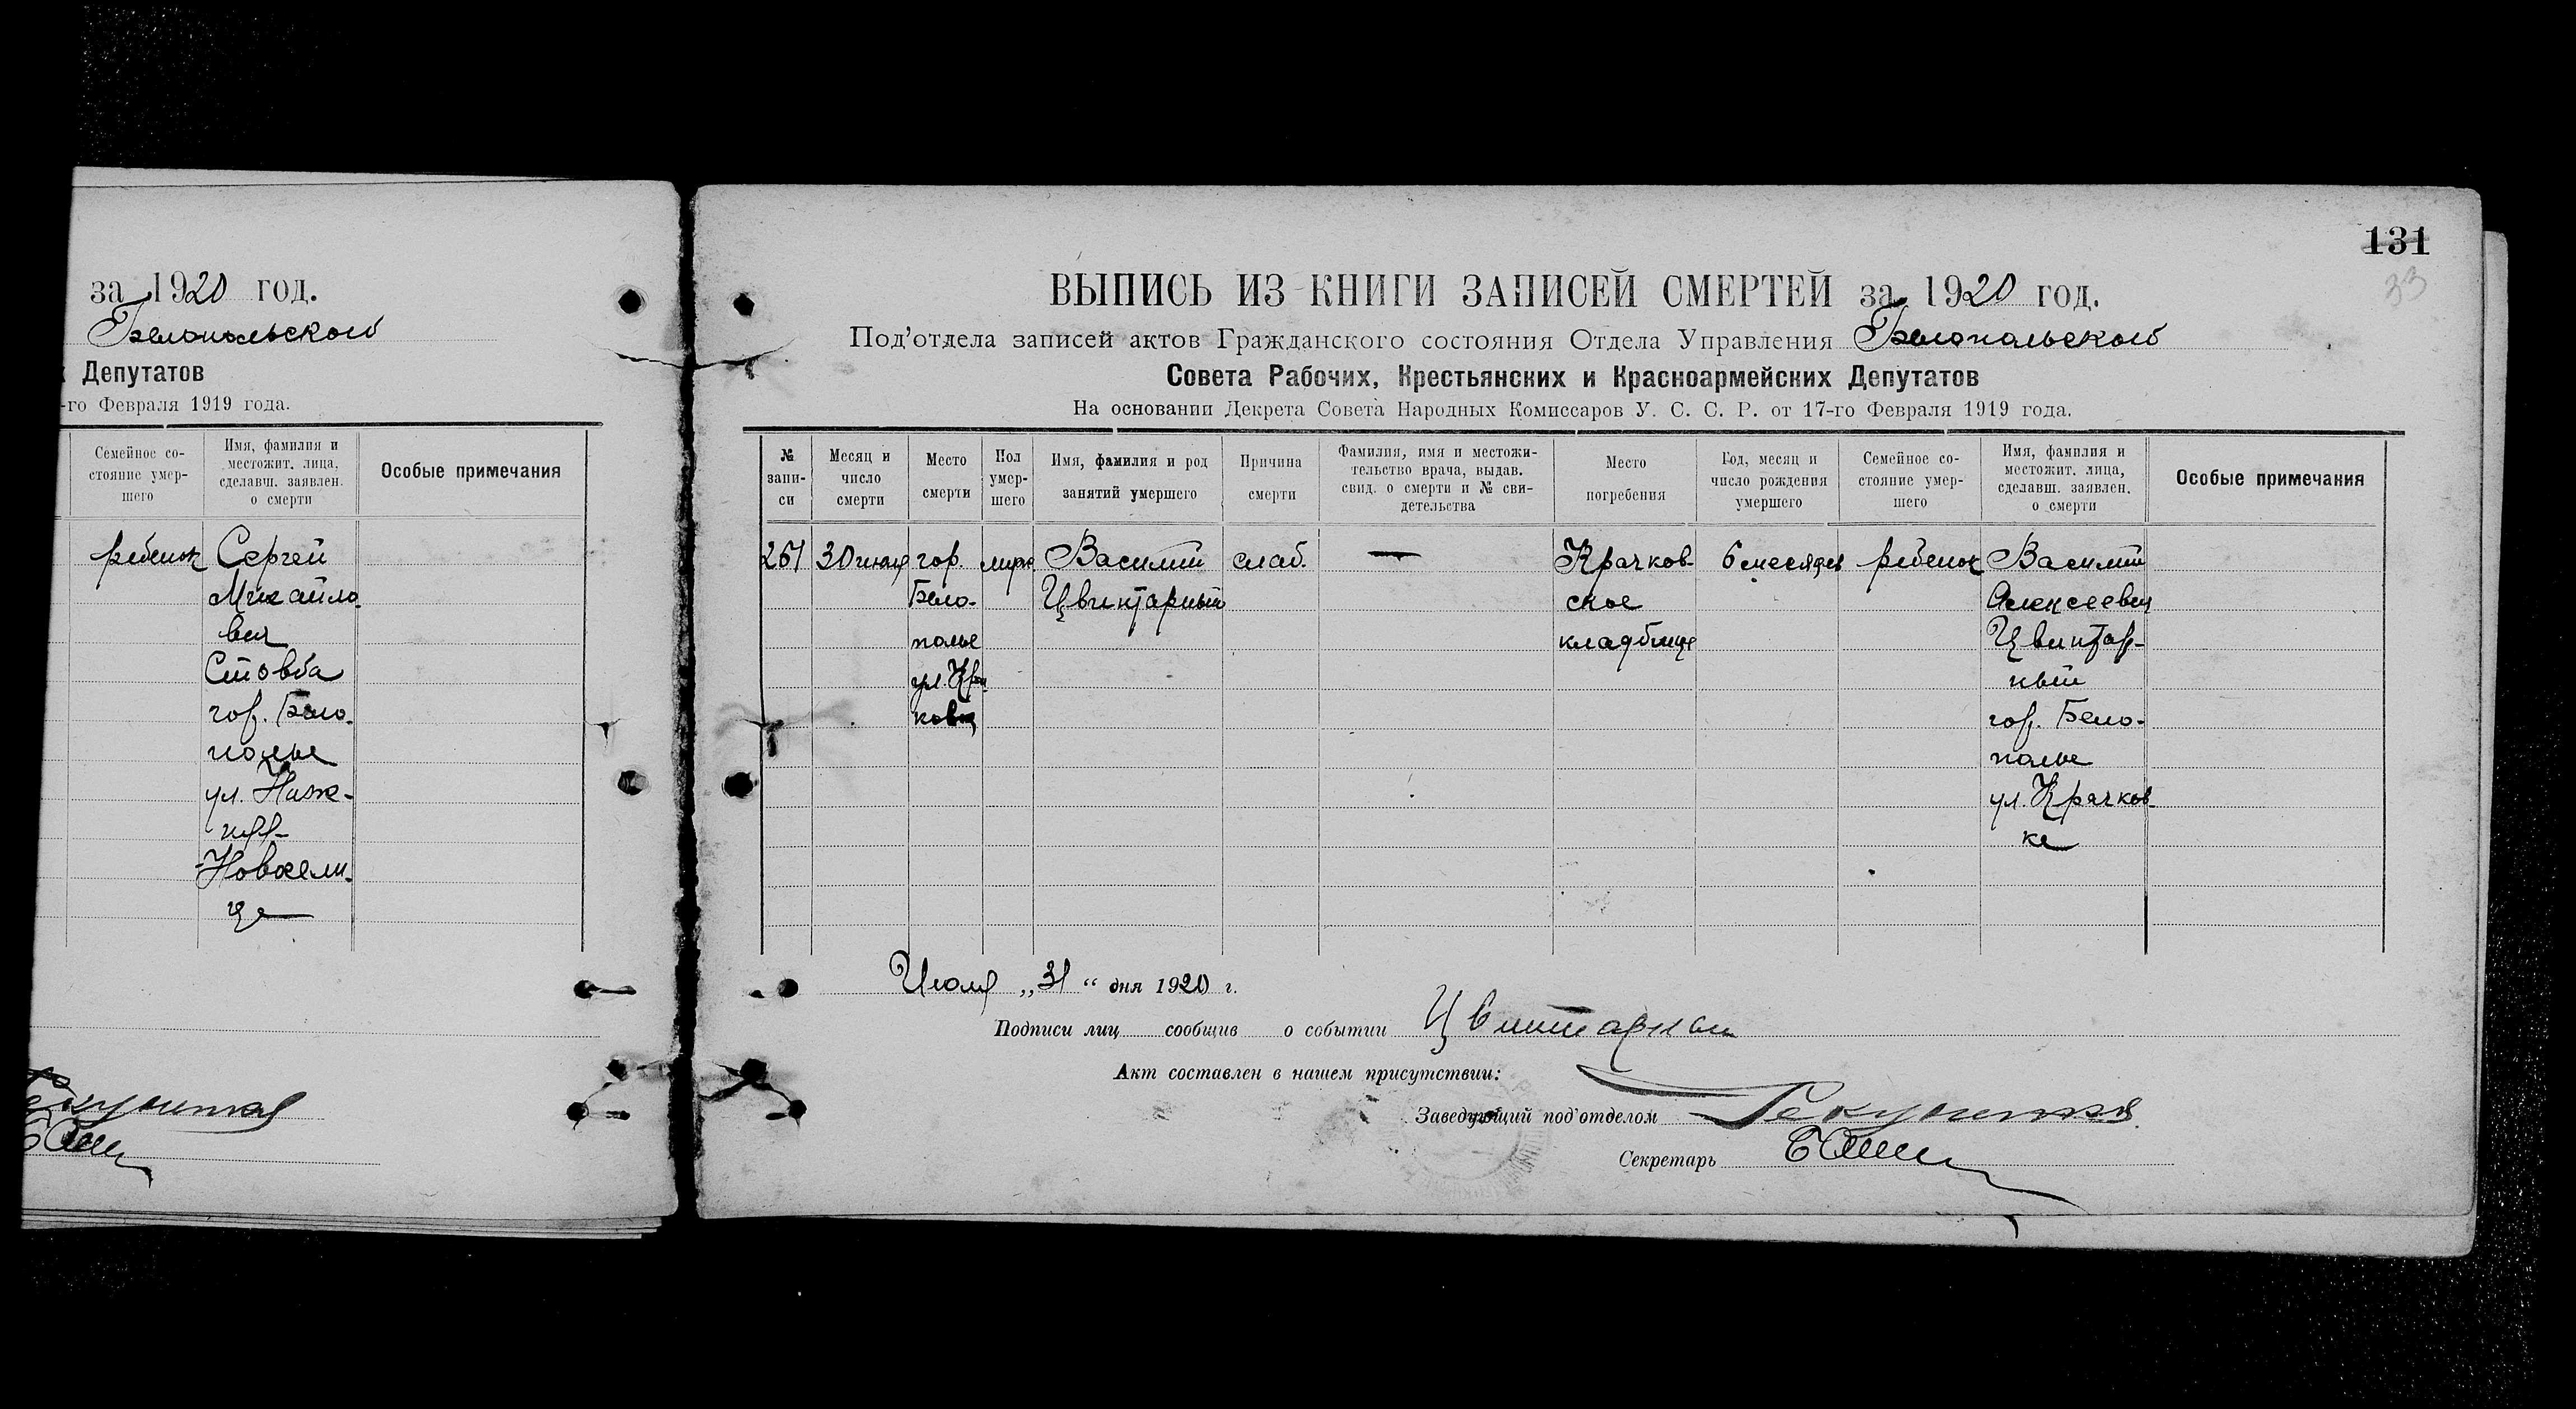 за 1920 год.
Белопольской
Депутатов
-го Февраля 1919 года.
Семейное со-
стояние умер-
шего
Имя, фамилия и
местожит. лица,
сделавш. заявлен.
о смерти
Особые примечания
ребенок
Сергей
Михайло-
вич
Стовба
гор. Бело-
полье
ул. Ниж-
Новосели-
це
131
33
ВЫПИСЬ ИЗ КНИГИ ЗАПИСЕЙ СМЕРТЕЙ за 1920 год.
Под'отдела записей актов Гражданского состояния Отдела Управления Белопольской
Совета Рабочих, Крестьянских и Красноармейских Депутатов
На основании Декрета Совета Народных Комиссаров У. С. С. Р. от 17-го Февраля 1919 года.
№
запи-
си
Месяц и
число
смерти
Место
смерти
Пол
умер-
шего
Имя, фамилия и род
занятий умершего
Причина
смерти
Фамилия, имя и местожи-
тельство врача, выдав.
свид. о смерти и № сви-
детельства
Место
погребения
Год, месяц и
число рождения
умершего
Семейное со-
стояние умер-
шего
Имя, фамилия и
местожит. лица,
сделавш. заявлен.
о смерти
Особые примечания
261
30 июля
гор.
Бело-
полье
ул. Крач-
ковка
Василий
Цвинтарный
слаб.
—
Крачков-
ское
кладбище
6 месяцев
ребенок
Василий
Алексеевич
Цвинтар-
ный
гор. Бело-
полье
ул. Крачков-
ке
Июля „31“ дня 1920 г.
Подписи лиц сообщив о событии Цвинтарный
Акт составлен в нашем присутствии:
Заведующий под'отделом
Секретарь